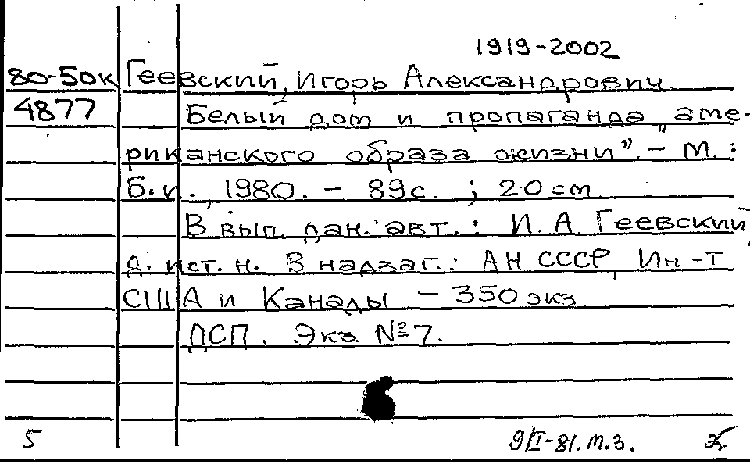 1919-2002
80-50к Геевский, Игорь Александрович
4877 Белый дом и пропаганда „аме-
риканского образа жизни”. - М.:
Б.и., 1980. - 89с. ; 20 см
В вып. дан. авт.: И. А. Геевский,
д. ист. н. В надзаг.: АН СССР, Ин-т
США и Канады - 350 экз
ДСП. Экз №7.
5 9/II-81. м.з.